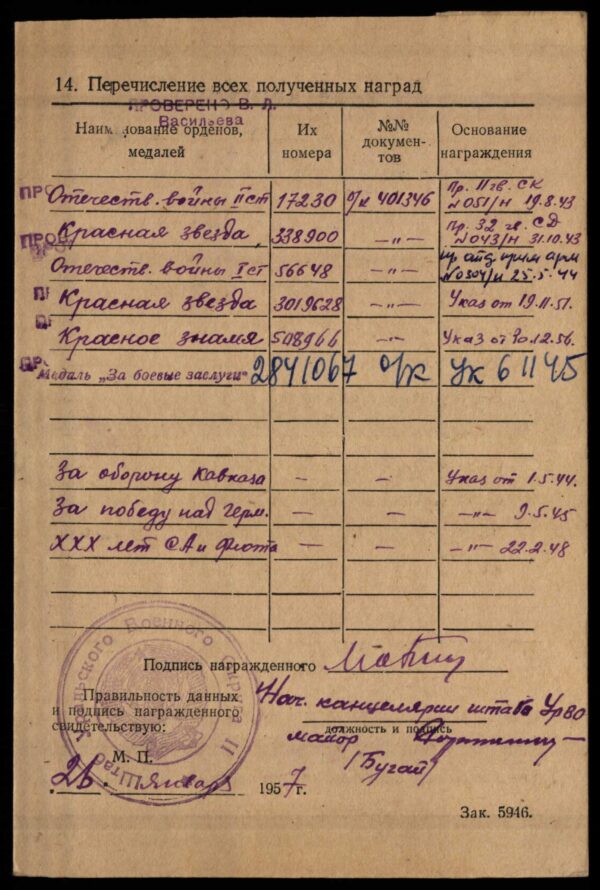 14. Перечисление всех полученных наград
ПРОВЕРЕНО В. Л.
Васильева
Наименование орденов, медалей Их номера №№ документов Основание награждения
ПРО Отечеств. войны II ст 17230 о/к 401346 Пр. 11 гв. СК №051/н 19.8.43
ПРОВ Красная звезда 338900 —"— Пр. 32 гв. СД №043/н 31.10.43
Отечеств. войны I ст 56648 —"— пр. отд. прим. арм №0304/н 25.5.44
Красная звезда 3019628 —"— Указ от 19.11.51.
Красное знамя 508966 —"— Указ от 30.12.56.
ПРО Медаль „За боевые заслуги" 2841067 о/к Ук 6 11 45
За оборону Кавказа — — Указ от 1.5.44.
За победу над герм. — — —"— 9.5.45
XXX лет СА и Флота — — —"— 22.2.48
Подпись награжденного
Правильность данных и подпись награжденного свидетельствую:
Нач. канцелярии штаба УрВО
должность и подпись
майор
(Бугай)
М. П.
26. Января 1957 г.
Штаб Уральского Военного Округа
Зак. 5946.